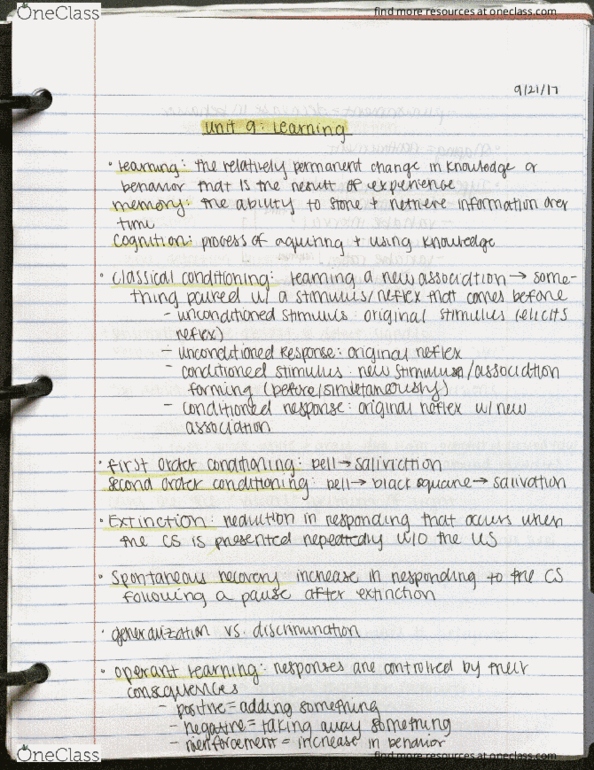 OneClass
find more resources at oneclass.com
9/21/17
unit 9: Learning
• learning: the relatively permanent change in knowledge or
behavior that is the result of experience
memory: the ability to store + retrieve information over
time
Cognition: process of aquiring + using knowledge
• classical conditioning: learning a new association → some-
thing paired w/ a stimulus/reflex that comes before
- unconditioned stimulus: original stimulus (elicits
reflex)
- unconditioned Response: original reflex
- conditioned stimulus: new stimulus/association
forming (before/simultaneously)
- conditioned response: original reflex w/ new
association
• first order conditioning: bell → salivation
second order conditioning: bell → black square → salivation
• Extinction: reduction in responding that occurs when
the CS is presented repeatedly w/o the US
• Spontaneous recovery increase in responding to the CS
following a pause after extinction
• generalization vs. discrimination
• operant learning: responses are controlled by their
consequences
- positive = adding something
- negative = taking away something
- reinforcement = increase in behavior
OneClass
find more resources at oneclass.com